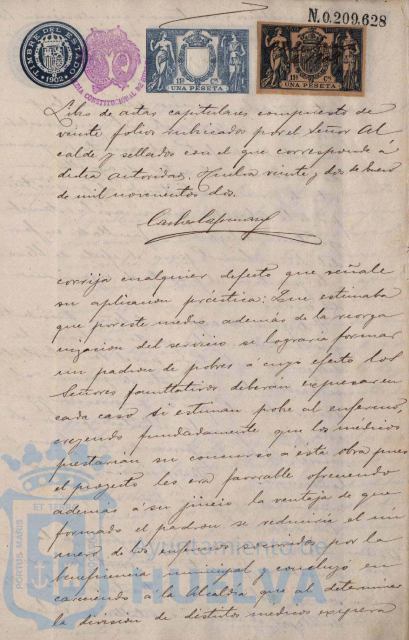 N.0.209.628
TIMBRE DEL ESTADO
1902
11ª Cª
UNA PESETA
11ª Cª
UNA PESETA
Libro de actas capitulares compuesto de
veinte folios rubricados por el Señor Al
calde y sellados con el que corresponde á
dicha autoridad. Huelva veinte y dos de Enero
de mil novecientos dos.
corrija cualquier defecto que señale
su aplicacion práctica: Que estimaba
que por este medio, además de la reorga
nizacion del servicio se lograria formar
un padron de pobres á cuyo efecto los
Señores facultativos deberán expresar en
cada caso si estiman pobre al enfermo,
creyendo fundadamente que los medicos
prestarian su concurso a esta obra pues
el proyecto les era favorable ofreciendo
además á su juicio la ventaja de que
formado el padron se reduciria el nú
mero de los enfermos asistidos por la
beneficencia municipal y concluyó en
careciendo á la Alcaldía que al determinar
la division de distritos medicos
PORTUS MARIS
Ayuntamiento de
HUELVA